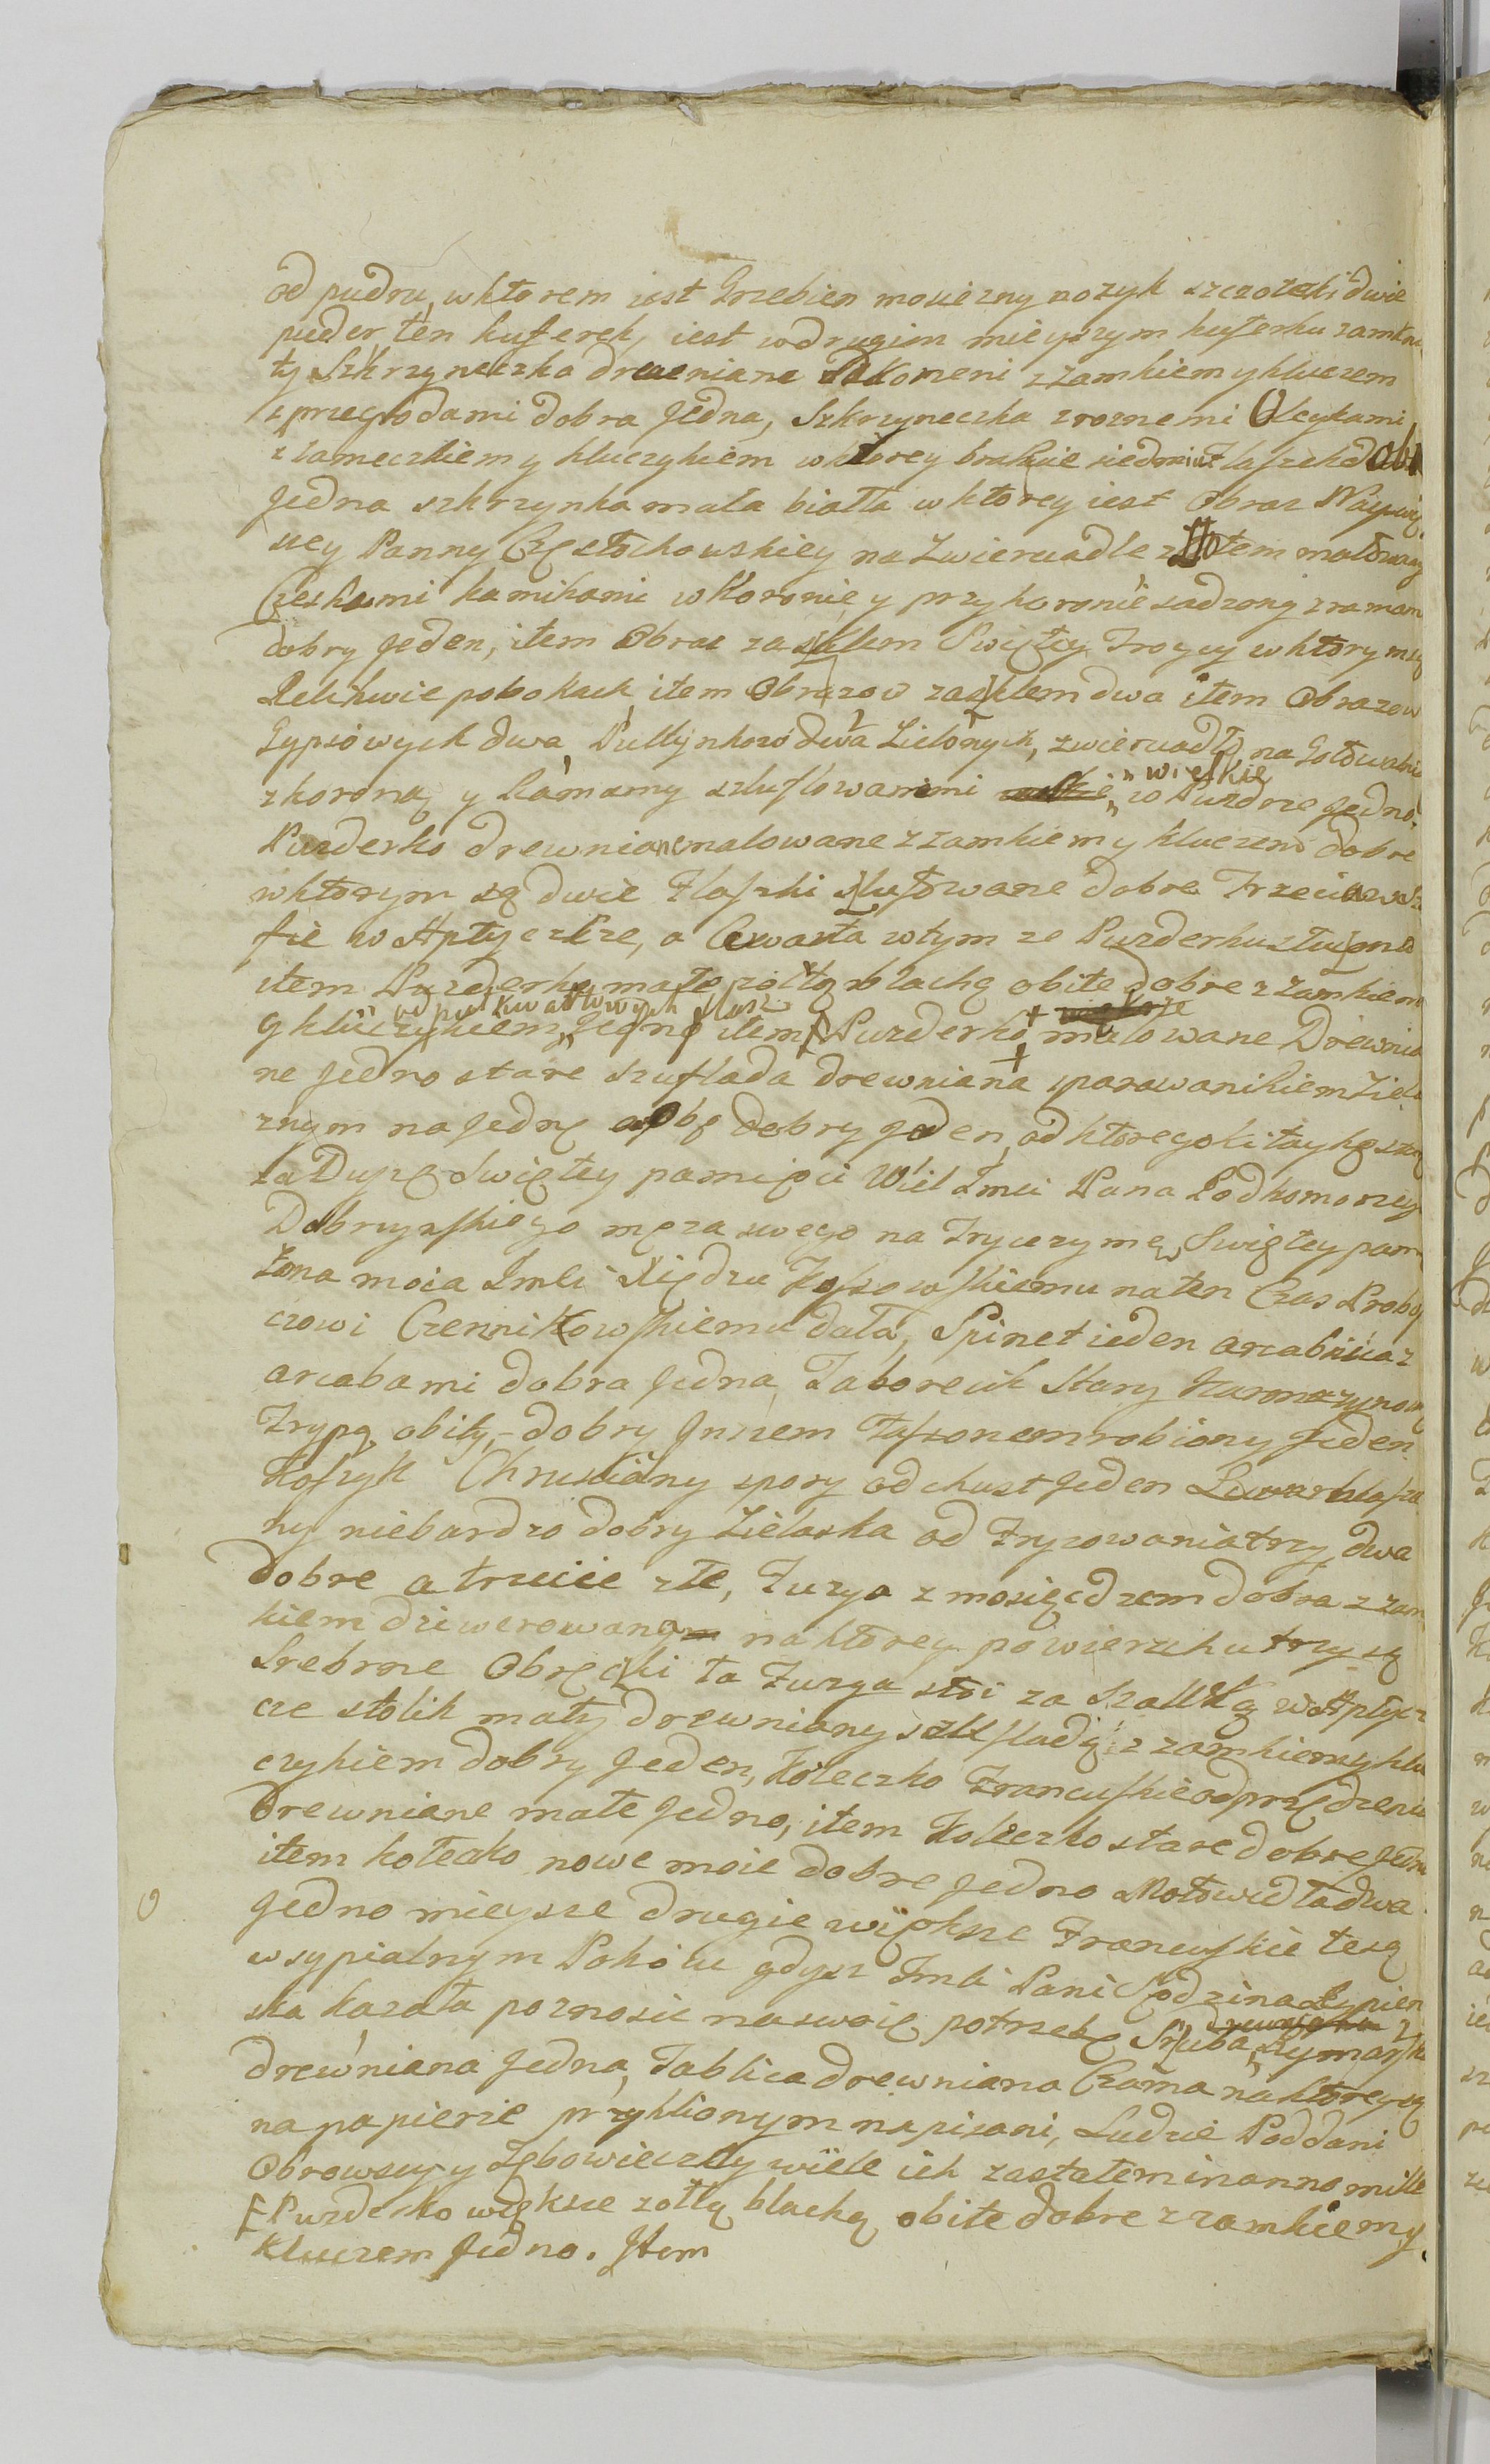 od pudru, wktorem iest Grzebien mosiezny nozyk szczoteki dwie
puder ten kuferek, iest wdrugim mieyszym kuferku zamkn
ty Szkrzyneczka drewniana zzamkiem y kluczem
z przegrodami dobra Jedna, Szkrzyneczka zroznemi Oleykami
z zameczkiem y kluczykiem wktorey brakuie siedmiu flaszek dob
Jedna szkrzynka mała biała wktorey iest Obraz Nayswię
szey Panny Częstochowskiey na Zwierciadle złotem malowany
Czeskiemi kamikami wKoronie y przykoronie sadzony zramami
dobry Jeden, item Obraz zasklem Swiętey Troycy wktorym są
Relikwie pobokach, item Obrazow zasklem dwa item Obrazow
Gypsowych dwa, Pultynkow dwa Zielonych, zwierciadło na Gotowalnie
zkoroną y Ramamy szluflowanemi wielkie w Puzdrze Jedno.
Puzderko drewniane malowane zzamkiem y kluczem dobre
wktorym są dwie Flaszki dobre Trzecia wSza
fie w Aptyczce, a Czwarta wtym ze Puzderku stłuczona
item Puzderko małe zołtą blachą obite dobre z Zamkiem
od pułkwaterwych flasz
y kluczykiem Jedno item Puzderko malowane Drewnia
ne Jedno stare szuflada drewniana zparawanikiem Żiela
znym na Jednę osobę dobry Jeden, od ktorego kitaykę
za Duszę Swiętey pamięci Wiel Jmci Pana Podkomorzego
Dobrzynskiego męza swego na Swiętey pam
Zona moia Jmci Xiędzu na ten Czas Probosz
czowi Czernikowskiemu dała, Spinet ieden arcabuza z
arcabami dobra Jedna, Taborecik Stary Karmazynową
Trypą obity, dobry Jnszem Faszonem robiony Jeden
Koszyk Chruściany spory od chust Jeden
ny niebardzo dobry Żielaska od Fryzowania trzy, dwa
dobre a trzecie złe, Fuzya z mosiędzem dobra z zam
kiem na ktorey powierzchu trzy są
Srebrne Obręczki ta Fuzya stoi za Szafką w Aptycz
ce stolik mały drewniany z szufladą z zamkiem y klu
czykiem dobry Jeden, Kołeczko Francuskie od przędzenia
Drewniane małe Jedno, item Kołeczko stare dobre Jedno
item kołecko nowe moie dobre Jedno Motowidła dwa
Jedno mieysze drugie większe Francuskie te są
w sypialnym Pokoiu gdysz Jmci Pani
ska kazała poznosic na swoię potrzebę Szruba, Rymarska
drewniana Jedna, Tablica drewniana Czarna na ktorey są
na papierze przyklionym napisani, Ludzie Poddani
Obrowscy y Zębowieczcy wiele ich zastałem in anno mille
Puzderko większe zołtą blachą obite dobre z zamkiem y
Kluczem Jedno. Jtem